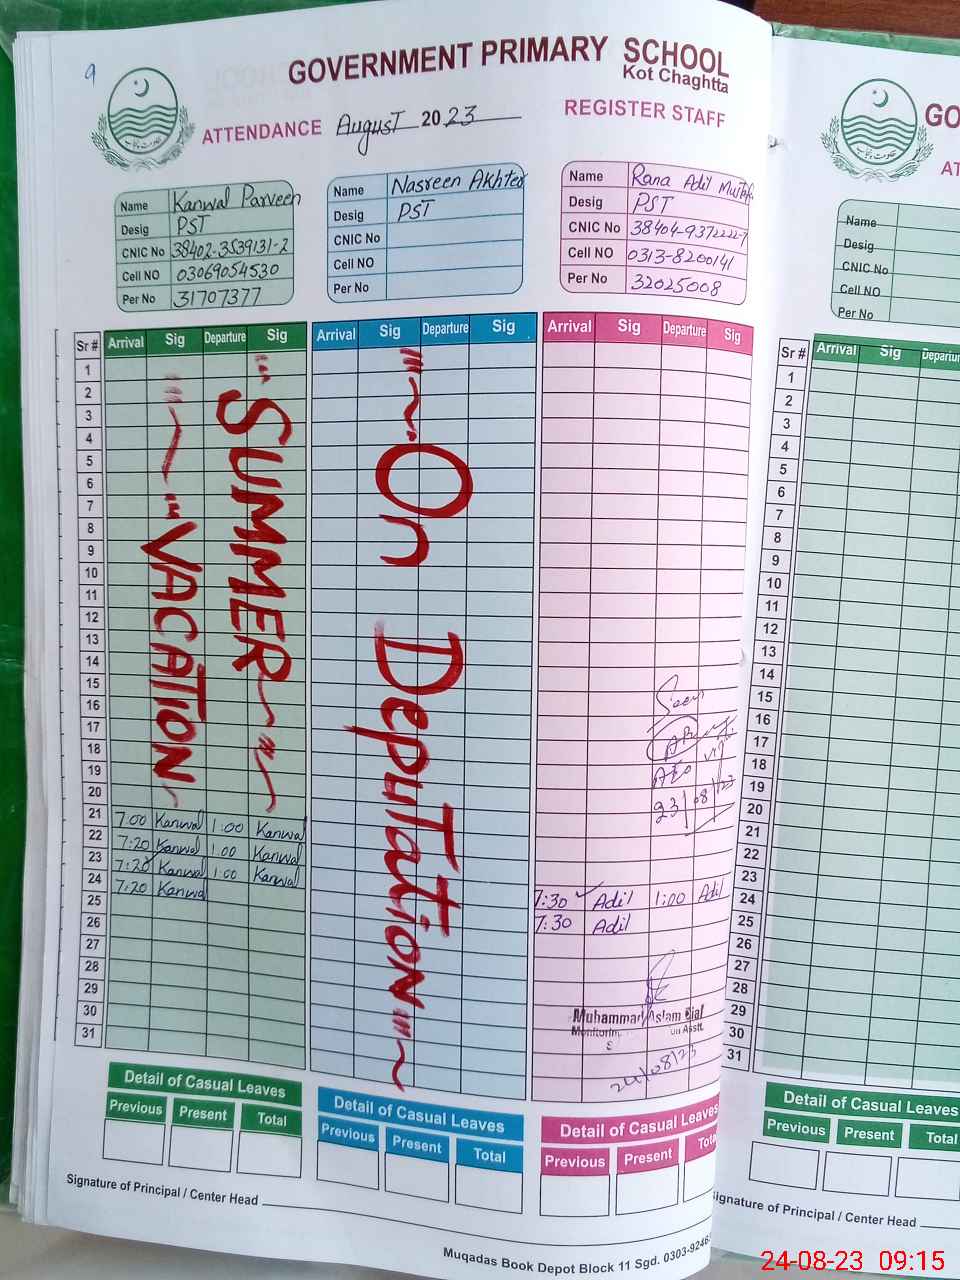 9
GOVERNMENT PRIMARY SCHOOL
Kot Chaghtta
ATTENDANCE August 2023
REGISTER STAFF
Name Kanwal Parveen
Desig PST
CNIC No 38402-3539131-2
Cell NO 03069054530
Per No 31707377
Name Nasreen Akhter
Desig PST
CNIC No
Cell NO
Per No
Name Rana Adil
Desig PST
CNIC No 38404-9372222-7
Cell NO 0313-8200141
Per No 32025008
Sr # Arrival Sig Departure Sig Arrival Sig Departure Sig Arrival Sig Departure Sig
1
2
3
4
5
6
7
8
9
10
11
12
13
14
15
16
17
18
19
20
SUMMER
VACATION
On Deputation
21 7:00 Kanwal 1:00 Kanwal
22 7:20 Kanwal 1:00 Kanwal
23 7:20 Kanwal 1:00 Kanwal
24 7:20 Kanwal
25
26
27
28
29
30
31
Seen
AEO
23/08/23
7:30 Adil 1:00 Adil
7:30 Adil
Muhammad Aslam
24/08/23
Detail of Casual Leaves
Previous Present Total
Detail of Casual Leaves
Previous Present Total
Detail of Casual Leaves
Previous Present Tota
Signature of Principal / Center Head
Muqadas Book Depot Block 11 Sgd. 0303-9246
GO
AT
Name
Desig
CNIC No
Cell NO
Per No
Sr # Arrival Sig Departur
1
2
3
4
5
6
7
8
9
10
11
12
13
14
15
16
17
18
19
20
21
22
23
24
25
26
27
28
29
30
31
Detail of Casual Leaves
Previous Present Total
ignature of Principal / Center Head
24-08-23 09:15